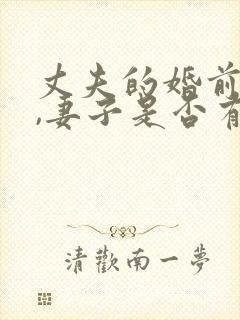 丈夫的婚前
,妻子是否有
清歡南一夢